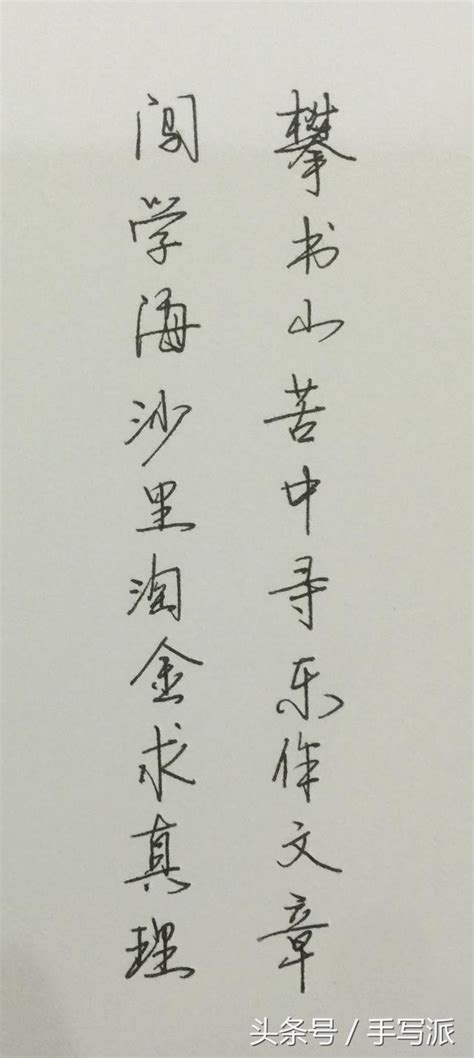 攀书山苦中寻乐作文章
闯学海沙里淘金求真理
头条号 / 手写派